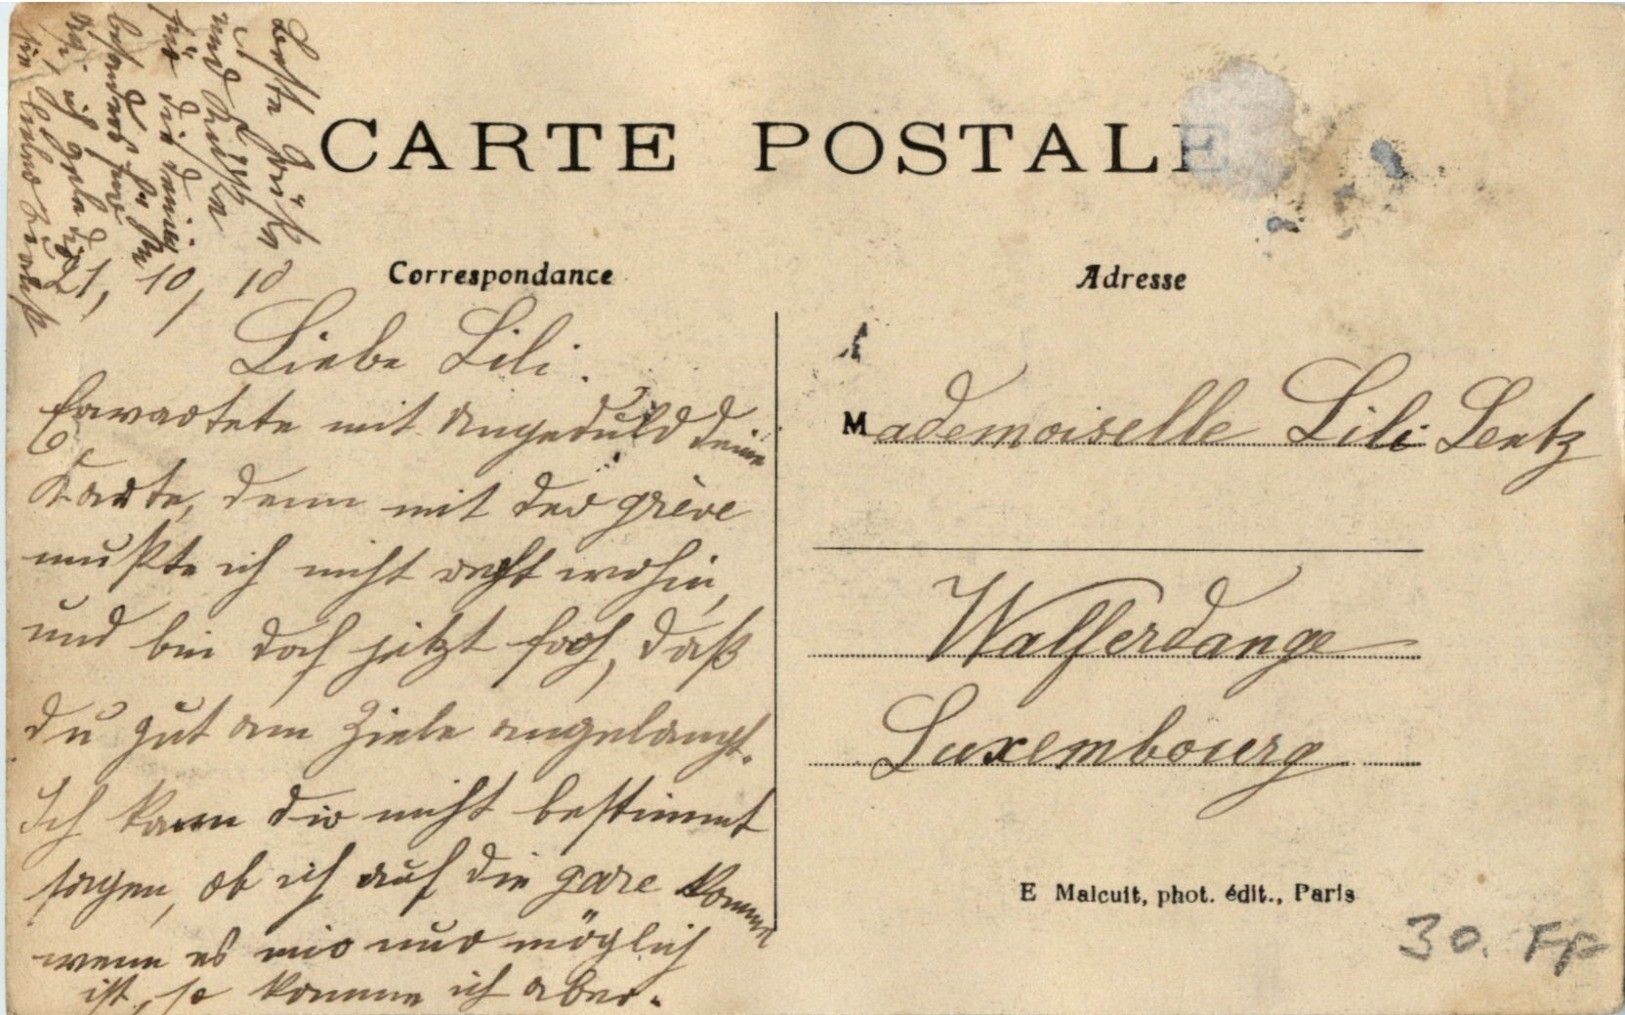 CARTE POSTALE
Correspondance
Adresse
21, 10, 10
Liebe Lili.
Erwartete mit Ungeduld deine
Karte, denn mit der grève
wußte ich nicht recht wohin,
und bin doch jetzt froh, daß
du gut am Ziele angelangt.
Ich kann dir nicht bestimmt
sagen, ob ich auf die gare komme
wenn es mir nur möglich
ist, so komme ich aber.
Beste Grüße
und Küsse
für die
besonders
Mademoiselle Lili Lentz
Walferdange
Luxembourg
E Malcuit, phot. édit., Paris
30. FF